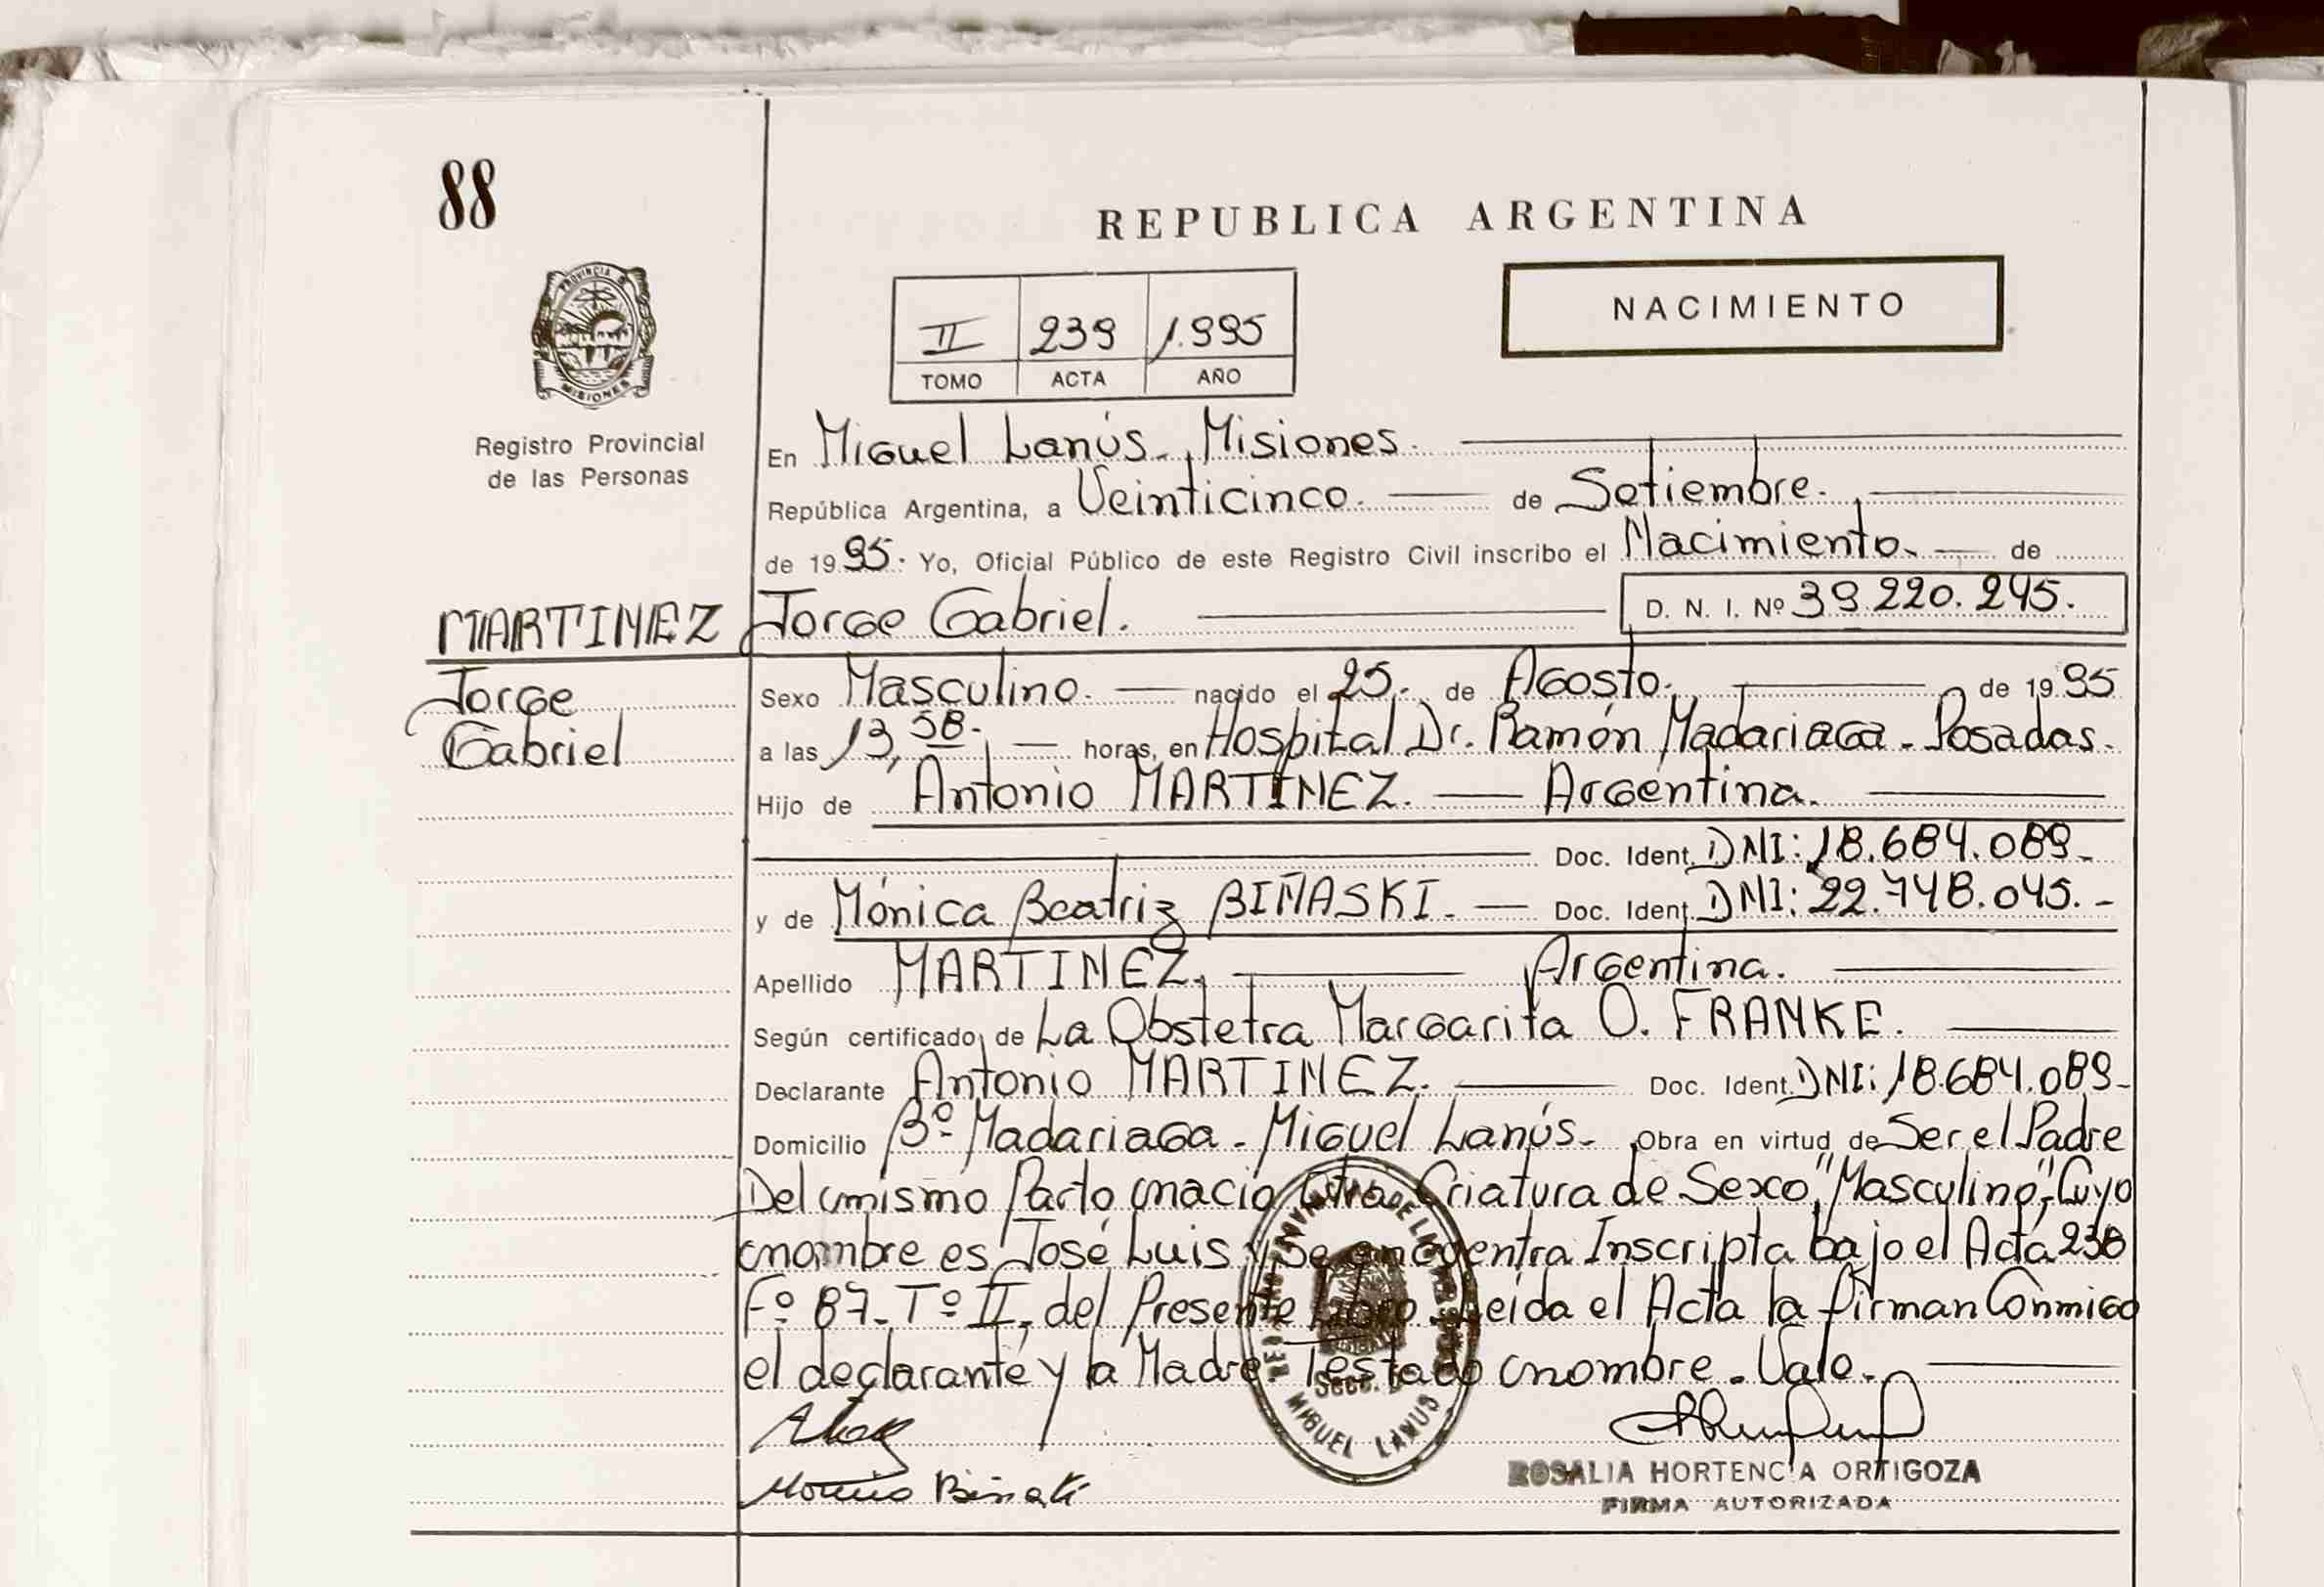 88
REPUBLICA ARGENTINA
PROVINCIA DE MISIONES
NACIMIENTO
II 239 1.995
TOMO ACTA AÑO
Registro Provincial
de las Personas
En Miguel Lanús - Misiones.
República Argentina, a Veinticinco. de Setiembre.
de 1995. Yo, Oficial Público de este Registro Civil inscribo el Nacimiento. de
MARTINEZ Jorge Gabriel. D. N. I. Nº 39.220.245.
Jorge
Gabriel
Sexo Masculino. nacido el 25. de Agosto. de 1995
a las 13,58. horas, en Hospital Dr. Ramón Madariaga - Posadas.
Hijo de Antonio MARTINEZ. Argentina.
Doc. Ident. DNI: 18.684.089-
y de Mónica Beatriz BIÑASKI. Doc. Ident. DNI: 22.748.045.-
Apellido MARTINEZ. Argentina.
Según certificado de La Obstetra Margarita O. FRANKE.
Declarante Antonio MARTINEZ. Doc. Ident. DNI: 18.684.089-
Domicilio Bº Madariaga - Miguel Lanús. Obra en virtud de Ser el Padre
Del mismo Parto nació Otra Criatura de Sexo "Masculino", Cuyo
nombre es José Luis y Se encuentra Inscripta bajo el Acta 238
Fº 87 - Tº II, del Presente Libro. Leída el Acta la firman Conmigo
el declarante y la Madre. Testado nombre. Vale.
MIGUEL LANUS
ROSALIA HORTENCIA ORTIGOZA
FIRMA AUTORIZADA